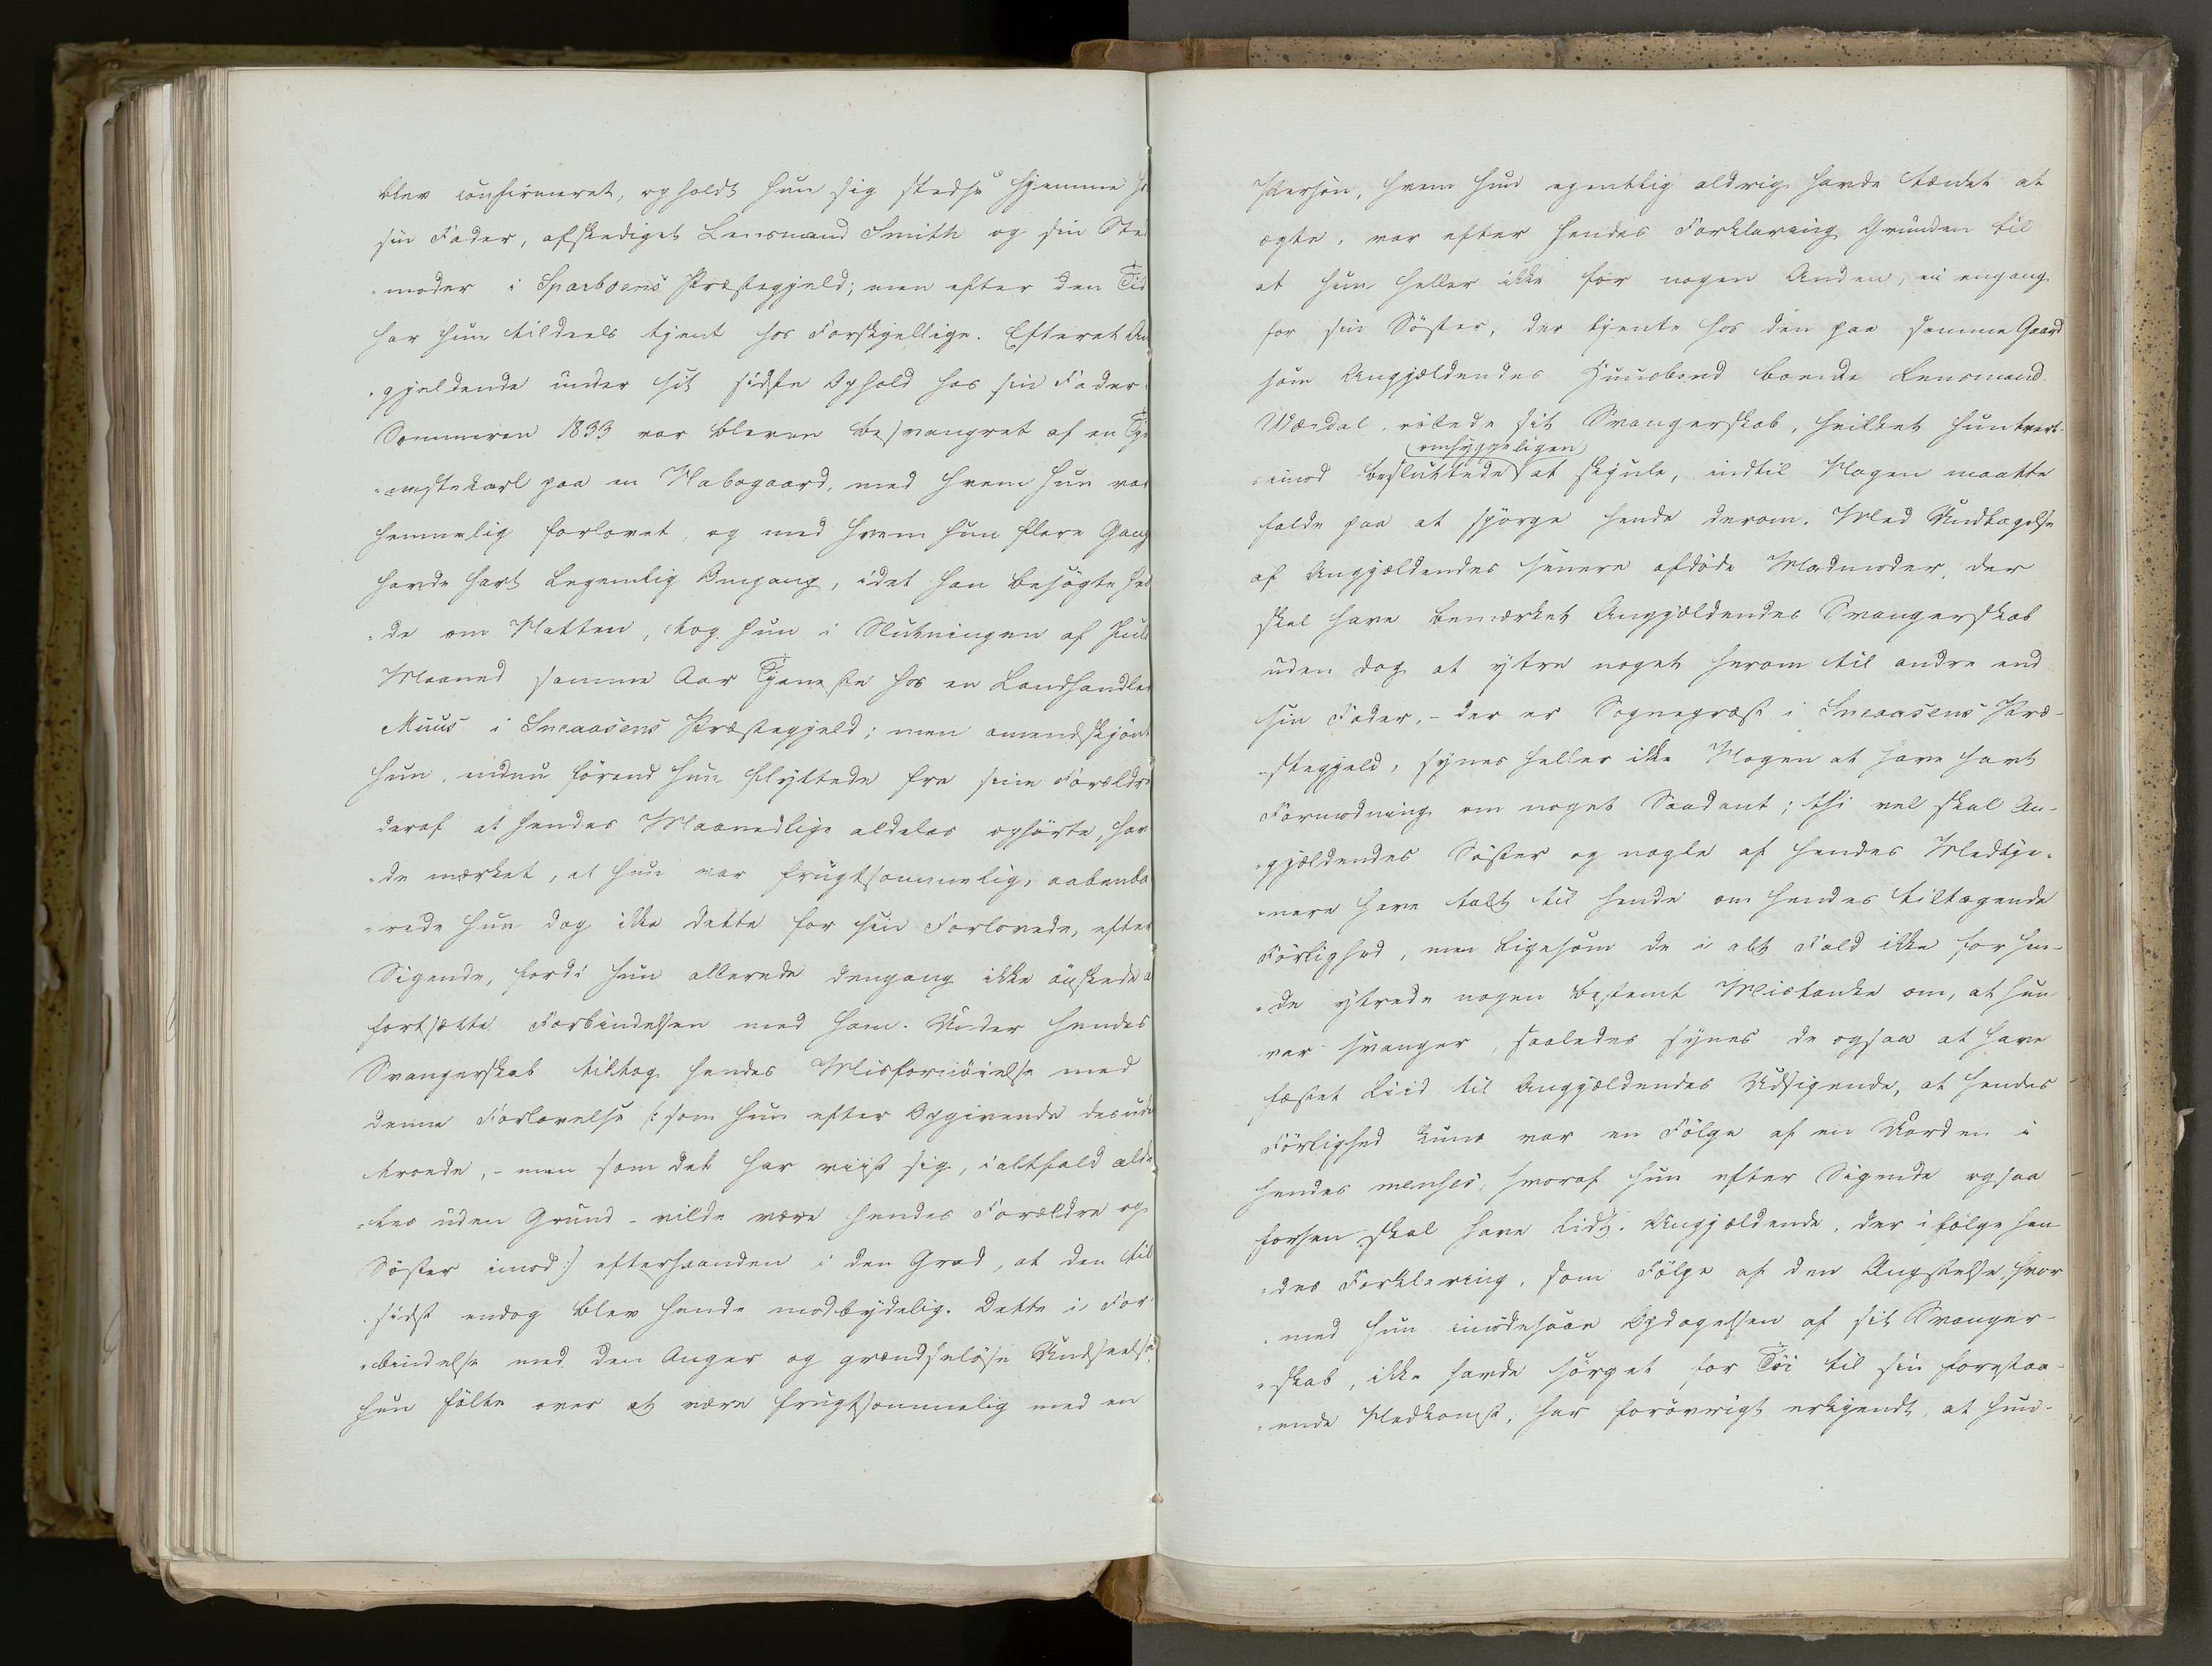 blev confirmeret, opholdt hun sig stedse hjemme ho
sin Fader, afskediget Lensmand Smith og sin Sted
-moder i Sparboens Præstegjeld; men efter den Tid
har hun tildeels tjent hos Forskjellige. Efterat An
-gjeldende under sit sidste Ophold hos sin Fader
Sommeren 1833 var bleven besvangret af en Tje
-nestekarl paa en Nabogaard, med hvem hun var
hemmelig forlovet, og med hvem hun flere Gang
havde havt legemlig Omgang, idet han besögte hen
-de om Natten, tog hun i Slutningen af Juli
Maaned samme Aar Tjeneste hos en Landhandler
Muus i Sneaasens Præstegjeld; men omendskjönt
hun, endnu förend hun flyttede fra sine Forældre
deraf at hendes Maanedlige aldeles ophörte, hav
-de mærket, at hun var frugtsommelig, aabenba
-rede hun dog ikke dette for sin Forlovede, efter
Sigende, fordi hun allerede dengang ikke önskede a
fortsætte Forbindelsen med ham. Under hendes
Svangerskab tiltog hendes Misfornöielse med
denne Forlovelse (: som hun efter Opgivende desude
troede, - men som det har viist sig, ialtfald alde
-les uden Grund - vilde være hendes Forældre og
Söster imod :) efterhaanden i den Grad, at den til
sidst endog blev hende modbydelig. Dette i For
-bindelse med den Anger og grændselöse Undseelse,
hun fölte over at være frugtsommelig med en
Person, hvem hun egentlig aldrig havde tænkt at
ægte, var efter hendes Forklaring Grunden til
at hun heller ikke for nogen Anden, ei engang
for sin Söster, der tjente hos den paa samme Gaard
som Angjældendes Huusbond boende Lensmand
Wærdal, röbede sit Svangerskab, hvilket hun tvert-
(omhyggeligen)
-imod besluttede at skjule, indtil Nogen maatte
falde paa at spörge hende derom. Med Undtagelse
af Angjældendes senere afdöde Madmoder, der
skal have bemærket Angjældendes Svangerskab
uden dog at yttre noget herom til andre end
sin Fader, - der er Sognepræst i Sneaasens Præ-
-stegjeld, synes heller ikke Nogen at have havt
Formodning om noget Saadant; thi vel skal An-
-gjældendes Söster og nogle af hendes Medtje-
-nere have talt til hende om hendes tiltagende
Förlighed, men ligesom de i alt Fald ikke for hen-
-de yttrede nogen bestemt Mistanke om, at hun
var svanger, saaledes synes de ogsaa at have
fæstet Liid til Angjældendes Udsigende, at hendes
Förlighed kuns var en Fölge af en Uorden i
hendes menses, hvoraf hun efter Sigende ogsaa
forhen skal have lidt. Angjældende, der ifölge hen
-des Forklaring, som Fölge af den Ængstelse, hvor
-med hun imödesaae Opdagelsen af sit Svanger-
-skab, ikke havde sörget for Töi til sin forestaa-
-ende Nedkomst, har forövrigt erkjendt, at hun-